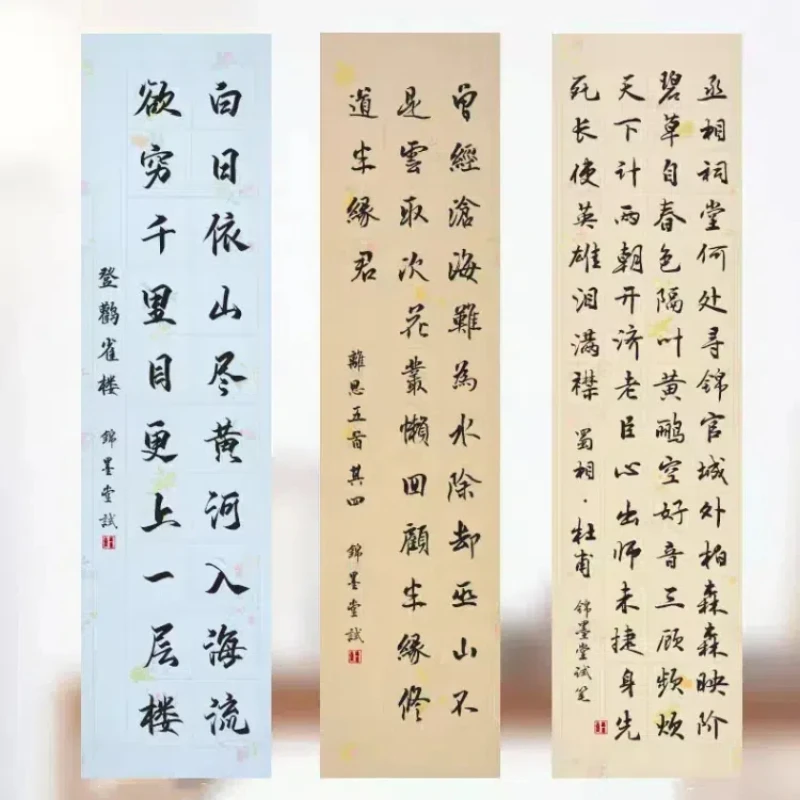 白日依山尽黄河入海流
欲穷千里目更上一层楼
登鸛雀楼 錦墨堂試
曾經滄海難為水除却巫山不
是雲取次花叢懶回顧半緣修
道半緣君
離思五首其四 錦墨堂試
丞相祠堂何处寻锦官城外柏森森映阶
碧草自春色隔叶黄鹂空好音三顾频烦
天下计两朝开济老臣心出师未捷身先
死长使英雄泪满襟 蜀相·杜甫 锦墨堂试笔